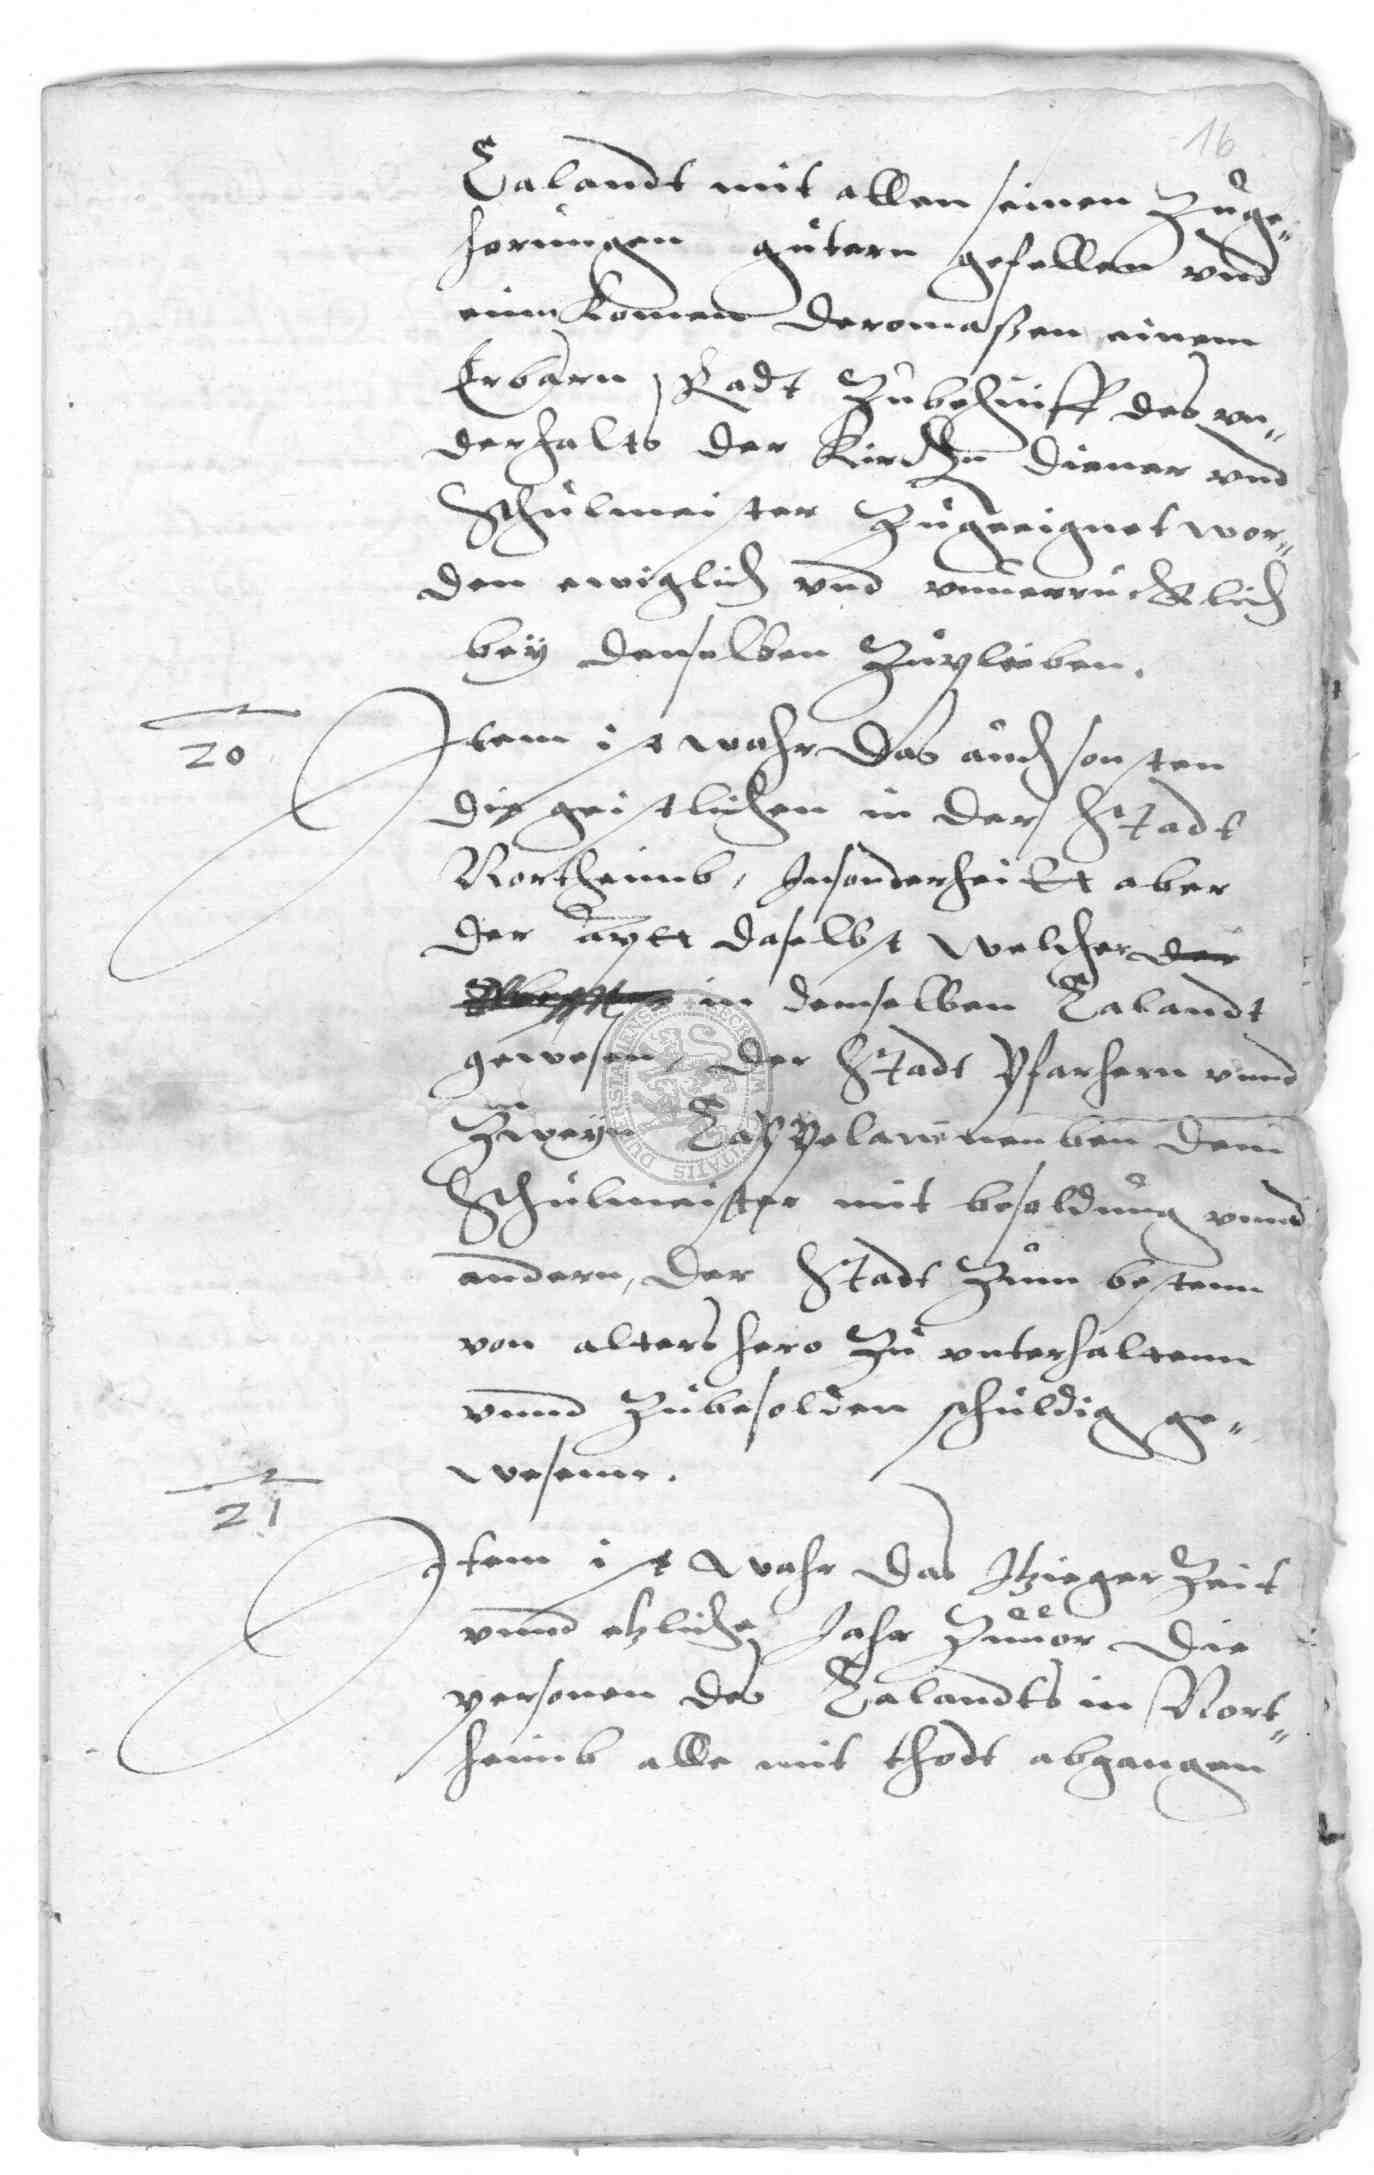 16
Calandt mit allen seinen Zuge-
horungen gutern gefellen vnd
einkomen deromaßen einem
Erbarn Radt Zubehuiff des vn-
derhalts der Kirchen diener vnd
Schulmeister Zugeeignet wor-
den ewiglich vnd vnuerrucklich
bey denselben Zupleiben.
20
Item ist wahr das auch sonsten
die geistlichen in der Stadt
Northeimb, Insonderheitt aber
der aptt daselbst welcher der
in demselben Calandt
gewesen, der Stadt Pfarhern vnnd
Zweyn Cappelanen neben dem
Schulmeister mit besoldung vnnd
andern, der Stadt Zum bestenn
von alters hero Zu vnterhaltenn
vnnd Zubesolden schuldig ge-
wesenn.
21
Item ist wahr das Itzieger Zeit
vnnd etzliche Jahr Zuuor die
personen des Calandts in Nort-
heimb alle mit thodt abgangen